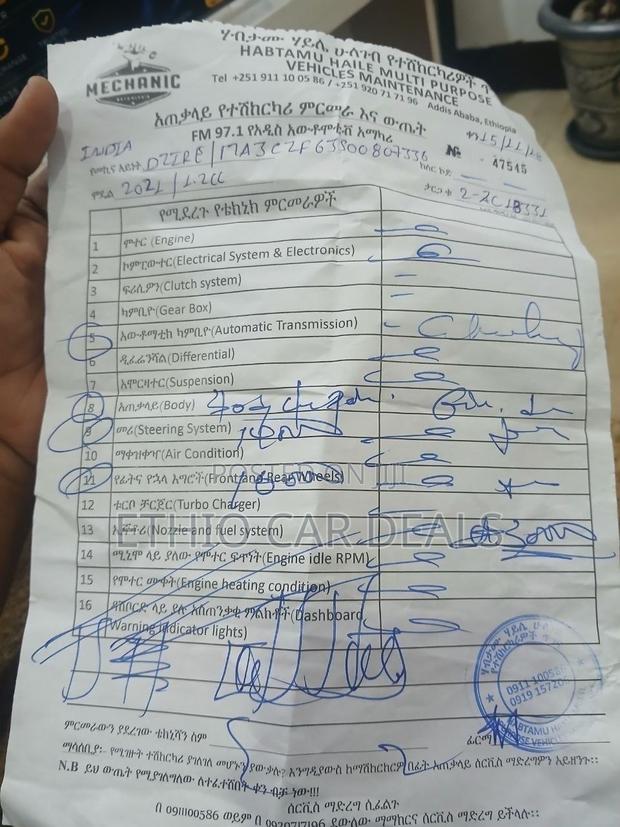 MECHANIC
ሃብታሙ ሃይሌ ሁለገብ የተሽከርካሪዎች ጥ
HABTAMU HAILE MULTI PURPOSE
VEHICLES MAINTENANCE
Tel +251 911 10 05 86 / +251 920 71 71 96 Addis Ababa, Ethiopia
አጠቃላይ የተሽከርካሪ ምርመራ እና ውጤት
FM 97.1 የአዲስ አውቶሞቲቭ አማካሪ
ቀን 15/11/18
INDIA
№ 47545
የመኪና አይነት DZIRE / MA3CZF63S00807336
ሞዴል 2021 / 1.2CC
ታርጋ ቁ 2-2C18331
የሚደረጉ የቴክኒክ ምርመራዎች
1 ሞተር (Engine)
2 ኮምፒውተር(Electrical System & Electronics)
3 ፍሪሲዮን(Clutch system)
4 ካምቢዮ(Gear Box)
5 አውቶማቲክ ካምቢዮ(Automatic Transmission)
6 ዲፈረንሻል(Differential)
7 አሞርዛተር(Suspension)
8 አጠቃላይ(Body)
9 መሪ(Steering System)
10 ማቀዝቀዣ(Air Condition)
11 የፊትና የኋላ እግሮች(Front and Rear Wheels)
POSTED ON JIJI
12 ቱርቦ ቻርጀር(Turbo Charger)
ETHIO CAR DEALS
13 (Nozzie and fuel system)
14 ሚኒሞ ላይ ያለው የሞተር ፍጥነት(Engine idle RPM)
15 የሞተር ሙቀት(Engine heating condition)
16 ዳሽቦርድ ላይ ያሉ አስጠንቃቂ ምልክቶች(Dashboard
Warning indicator lights)
0911 100586
0919 15720
ምርመራውን ያደረገው ቴክኒሻን ስም
ፊርማ
ማሳሰቢያ፡- የሚገዙት ተሽከርካሪ ያገለገለ መሆኑን ያውቃሉ? እንግዲያውስ ከማሽከርከርዎ በፊት አጠቃላይ ሰርቪስ ማድረግዎን አይዘንጉ።
N.B ይህ ውጤት የሚያገለግለው ለተፈተሸበት ቀን ብቻ ነው!!!
ሰርቪስ ማድረግ ሲፈልጉ
በ 0911100586 ወይም በ 0920717196 ደውለው ማማከርና ሰርቪስ ማድረግ ይችላሉ።